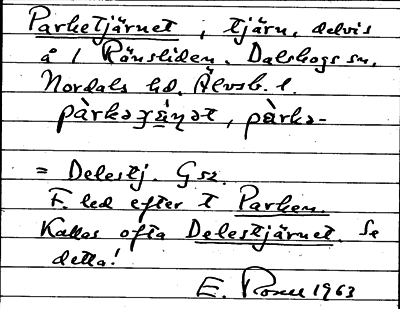 Parketjärnet, tjärn, delvis
å / Ränsliden. Dalskogs sn,
Nordals hd, Älvsb. l.
pàrkəɟä̀ṇət, pàrkə-
= Delestj. G 52.
F. led efter t Parken.
Kallas ofta Delestjärnet. Se
detta!
E. 1963